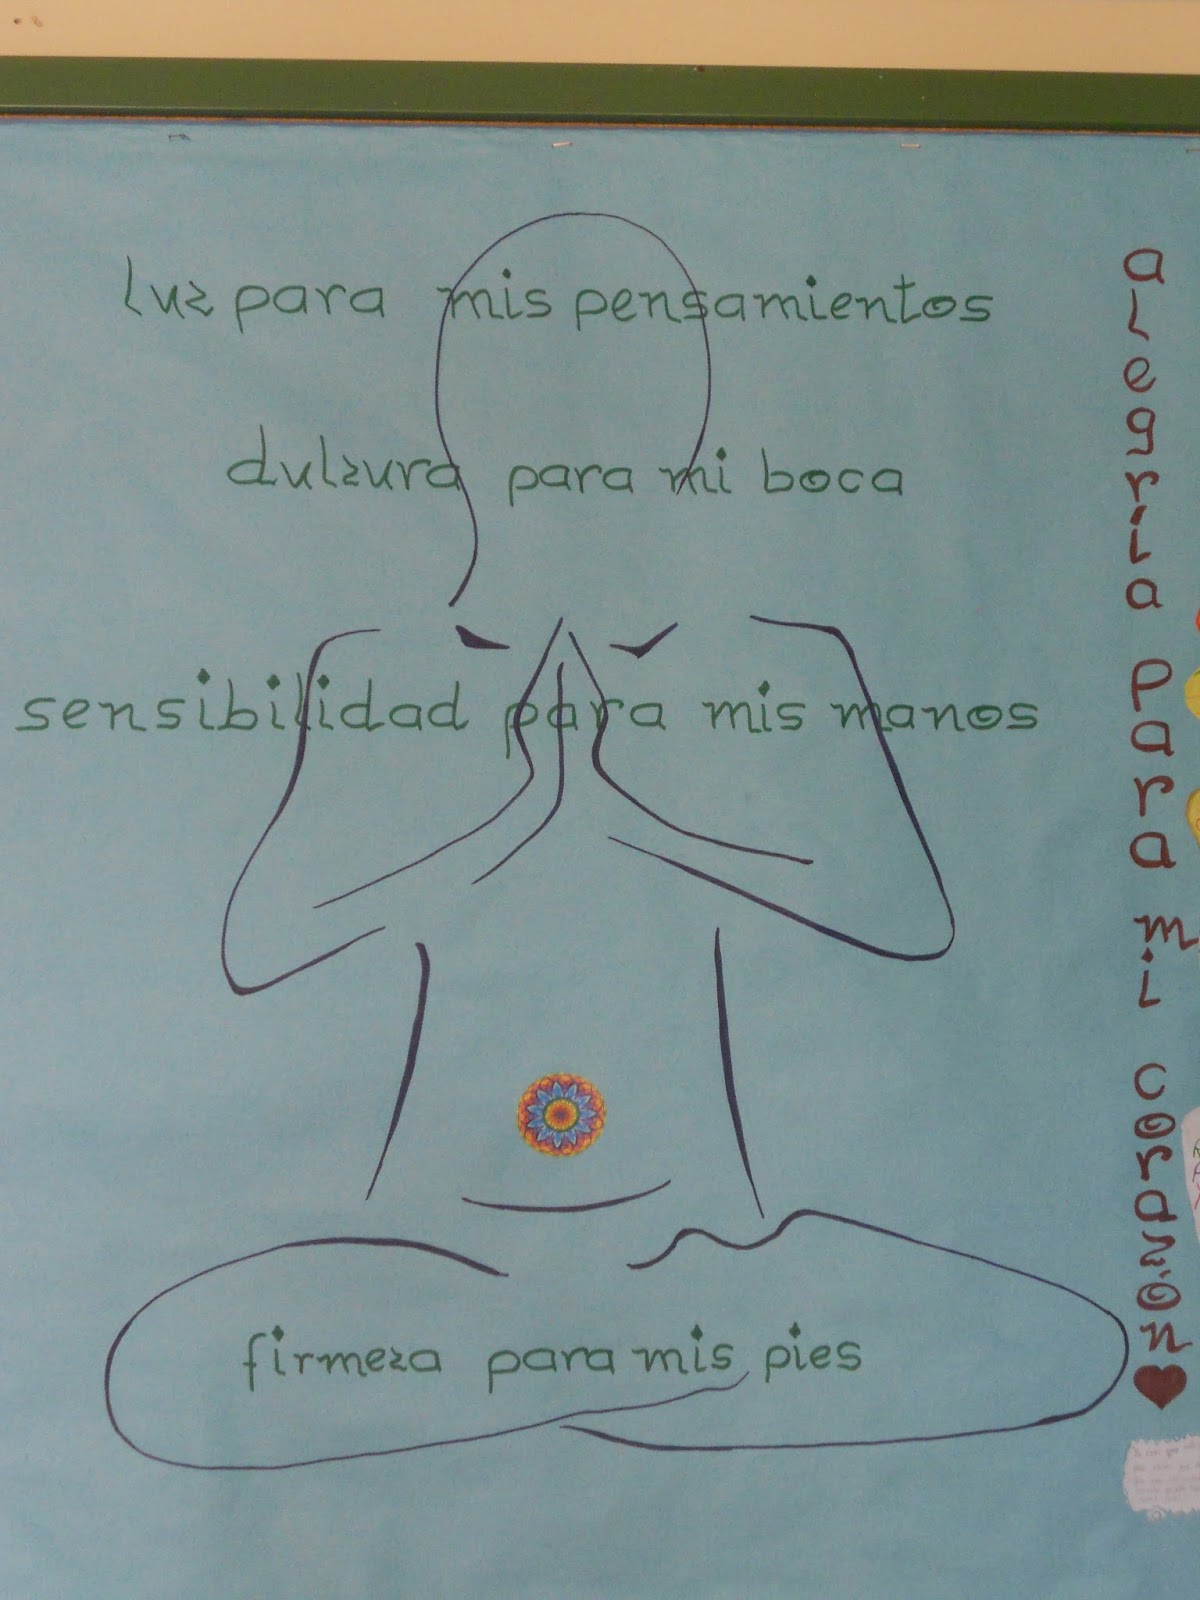 luz para mis pensamientos
dulzura para mi boca
sensibilidad para mis manos
firmeza para mis pies
alegría para mi corazón